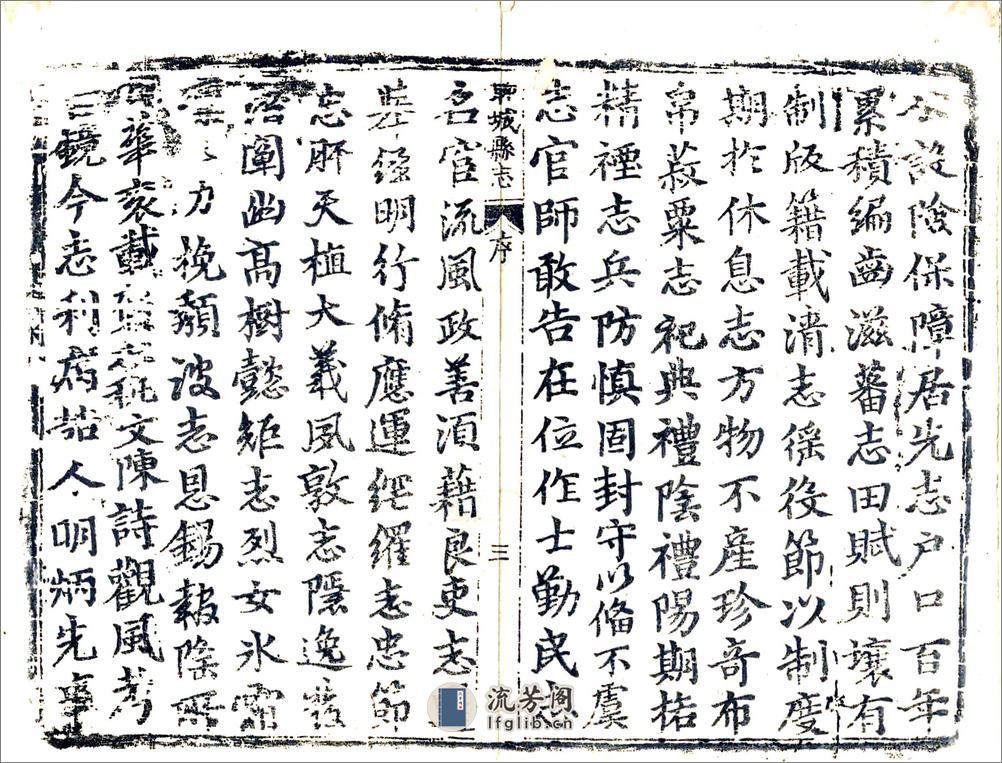 公設險保障居先志戶口百年
累積編齒滋蕃志田賦則壤有
制版籍載清志徭役節以制度
期扵休息志方物不產珍奇布
帛菽粟志祀典禮陰禮陽期格
精禋志兵防慎固封守以俻不虞
志官師敢告在位作士勤民志
聊城縣志 序 三
名宦流風政善湏藉良吏志
經明行脩應運繩繩志忠節
志肝天植大義夙敦志隱逸發
潛闡幽高樹懿矩志烈女氷霜
力挽頽波志恩錫報隆
載文陳詩觀風考
鏡今志利病喆人明炳先事
流芳阁
lfglib.cn